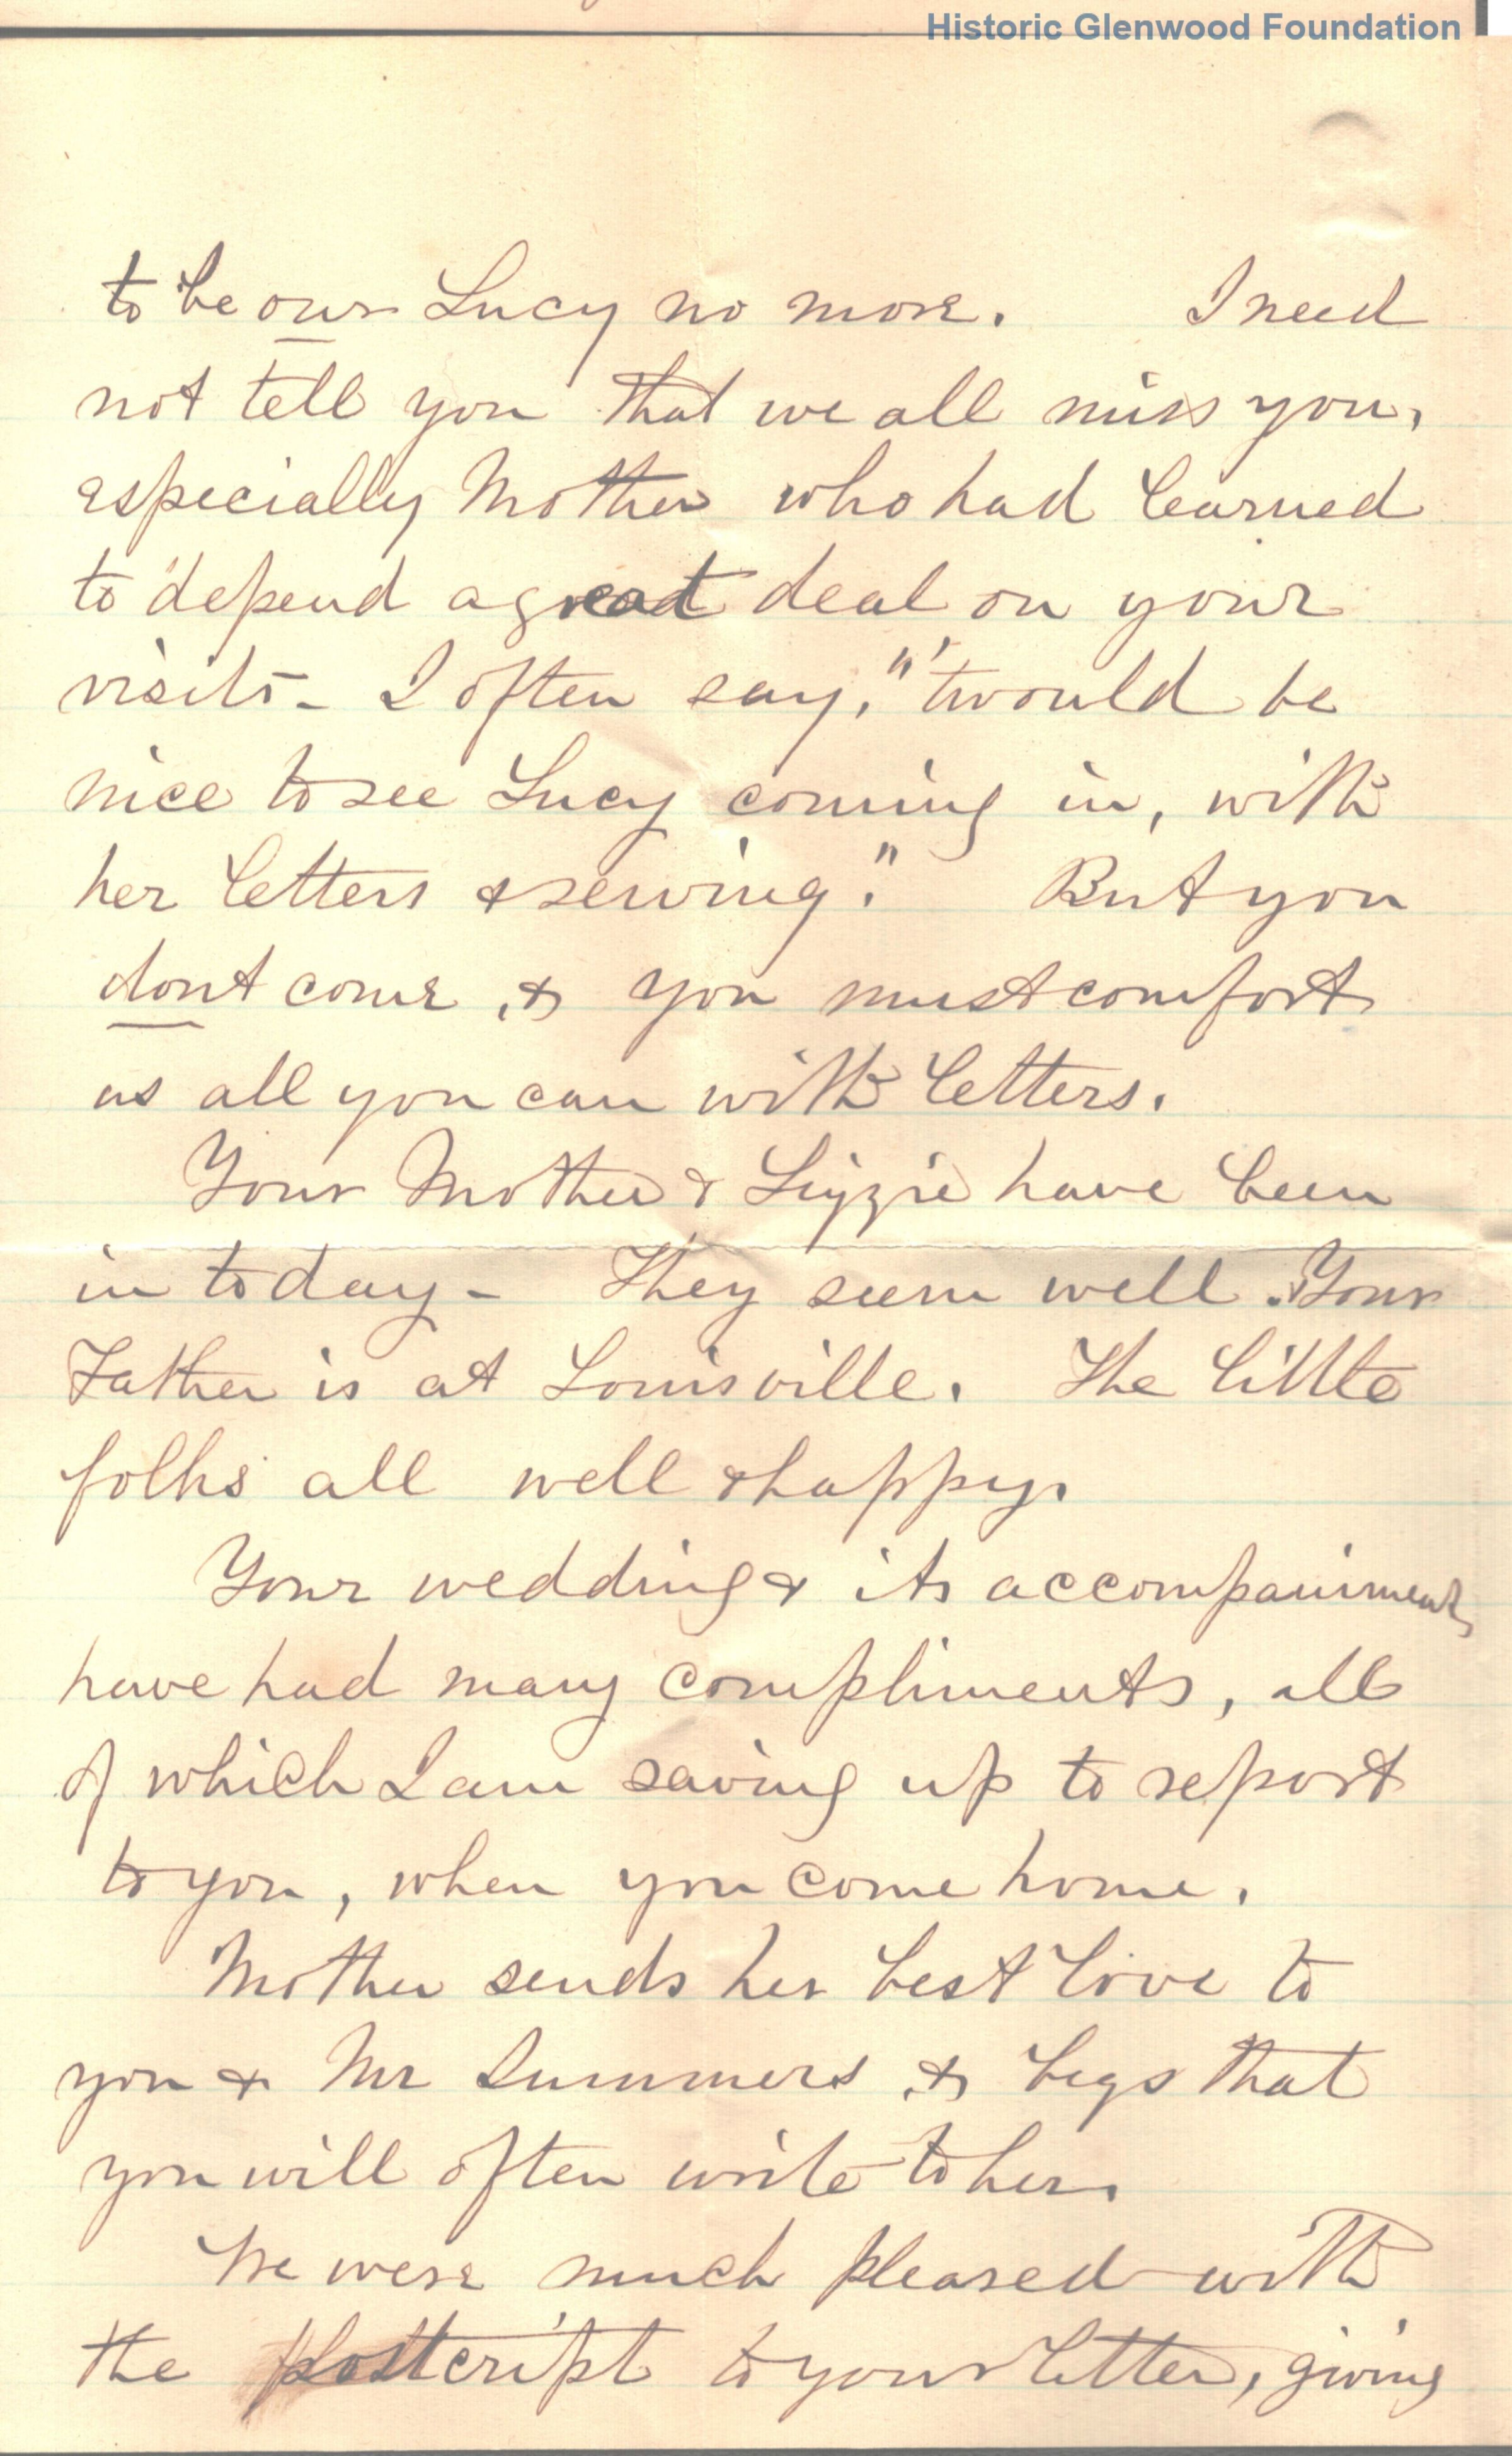 Historic Glenwood Foundation
to be our Lucy no more. I need
not tell you that we all miss you,
especially Mother who had learned
to depend a great deal on your
visits - I often say, "'twould be
nice to see Lucy coming in, with
her letters & sewing." But you
dont come, & you must comfort
us all you can with letters.
Your Mother & Lizzie have been
in today - They seem well. Your
Father is at Louisville. The little
folks all well & happy.
Your wedding & its accompaniments
have had many compliments, all
of which I am saving up to report
to you, when you come home.
Mother sends her best love to
you & Mr Summers & begs that
you will often write to her.
We were much pleased with
the postcript to your letter, giving